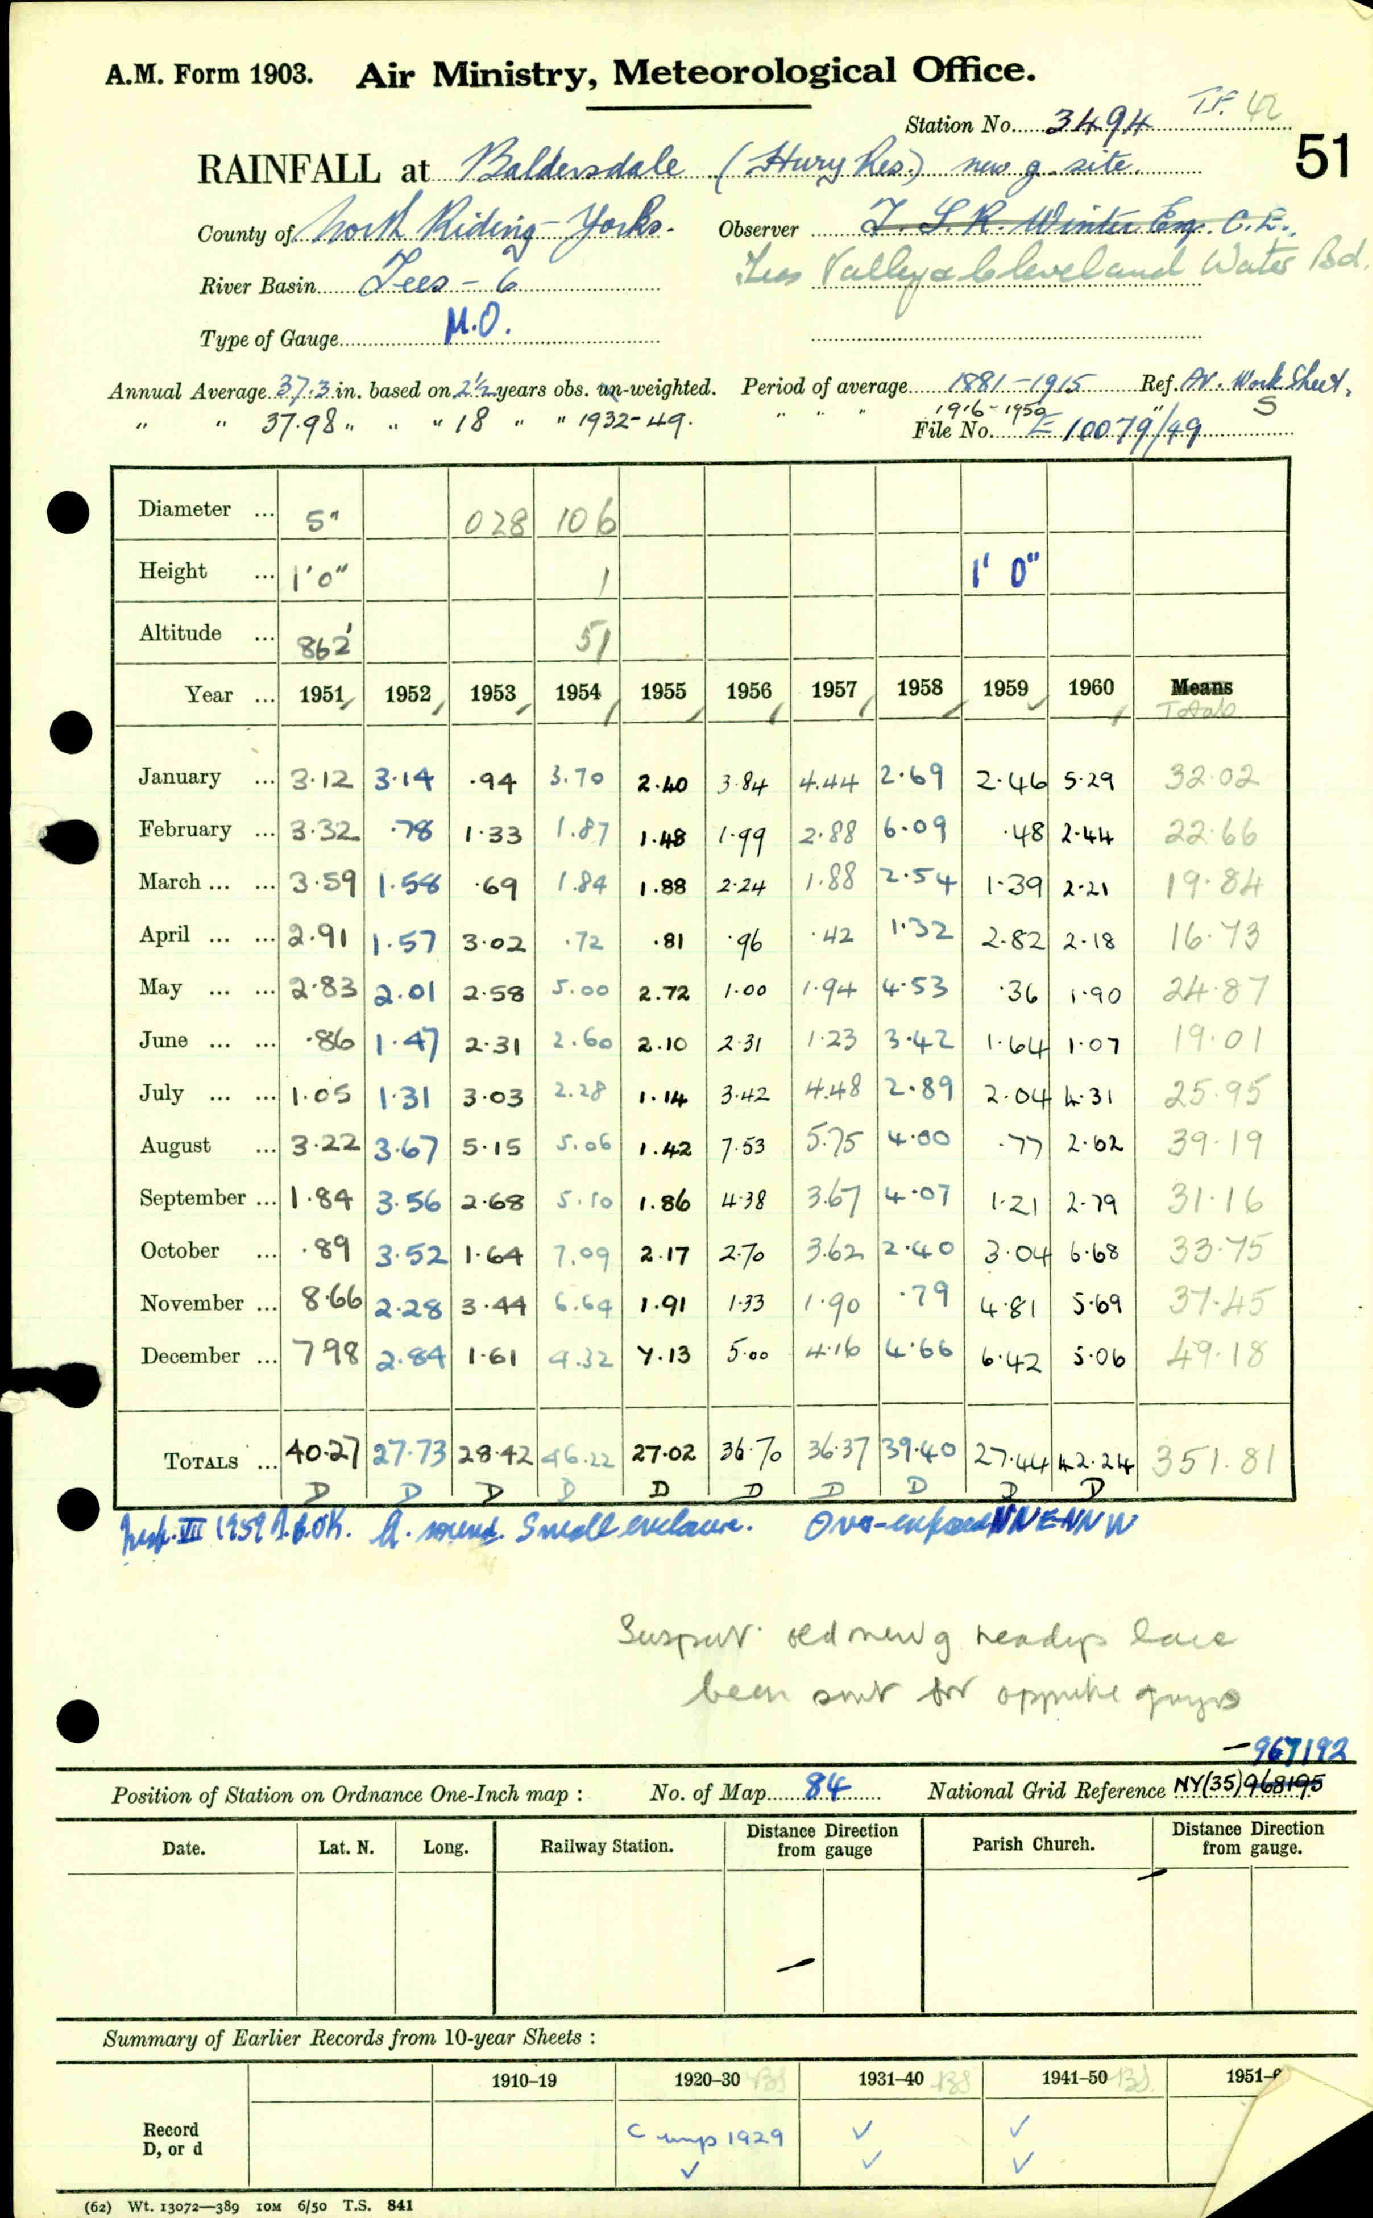 A.M. Form 1903. Air Ministry, Meteorological Office.
Station No. 3494 T.F. 42
51
RAINFALL at Baldersdale (Hury Res.) new g. site.
County of North Riding - Yorks. Observer T. S. R. Winter Esq. C.E.,
River Basin Tees - 6 Tees Valley & Cleveland Water Bd.
Type of Gauge M.O.
Annual Average 37.3 in. based on 2½ years obs. un-weighted. Period of average 1881-1915 Ref. Av. Work Sheet,
" " 37.98 " " " 18 " " 1932-49. " " " 1916-1950 " S
File No. E 10079/49
Diameter ... 5" 028 106
Height ... 1'0" 1 1' 0"
Altitude ... 862' 51
Year ... 1951 1952 1953 1954 1955 1956 1957 1958 1959 1960 Means
Totals
January ... 3.12 3.14 .94 3.70 2.40 3.84 4.44 2.69 2.46 5.29 32.02
February ... 3.32 .78 1.33 1.87 1.48 1.99 2.88 6.09 .48 2.44 22.66
March ... ... 3.59 1.58 .69 1.84 1.88 2.24 1.88 2.54 1.39 2.21 19.84
April ... ... 2.91 1.57 3.02 .72 .81 .96 .42 1.32 2.82 2.18 16.73
May ... ... 2.83 2.01 2.58 5.00 2.72 1.00 1.94 4.53 .36 1.90 24.87
June ... ... .86 1.47 2.31 2.60 2.10 2.31 1.23 3.42 1.64 1.07 19.01
July ... ... 1.05 1.31 3.03 2.28 1.14 3.42 4.48 2.89 2.04 4.31 25.95
August ... 3.22 3.67 5.15 5.06 1.42 7.53 5.75 4.00 .77 2.62 39.19
September ... 1.84 3.56 2.68 5.10 1.86 4.38 3.67 4.07 1.21 2.79 31.16
October ... .89 3.52 1.64 7.09 2.17 2.70 3.62 2.40 3.04 6.68 33.75
November ... 8.66 2.28 3.44 6.64 1.91 1.33 1.90 .79 4.81 5.69 37.45
December ... 7.98 2.84 1.61 4.32 7.13 5.00 4.16 4.66 6.42 5.06 49.18
TOTALS ... 40.27 27.73 28.42 46.22 27.02 36.70 36.37 39.40 27.44 42.24 351.81
D D D D D D D D D D
Insp. VII 1959 OK. sound. Small enclosure. Over-exposed NNE-NNW
Suspect old new g readings have
been sent for opposite gauges
967192
Position of Station on Ordnance One-Inch map : No. of Map 84 National Grid Reference NY(35) 968195
Date. Lat. N. Long. Railway Station. Distance Direction from gauge Parish Church. Distance Direction from gauge.
Summary of Earlier Records from 10-year Sheets :
1910-19 1920-30 1931-40 1941-50 1951-
Record
D, or d
C 1929 ✓ ✓
✓ ✓ ✓
(62) Wt. 13072—389 10M 6/50 T.S. 841